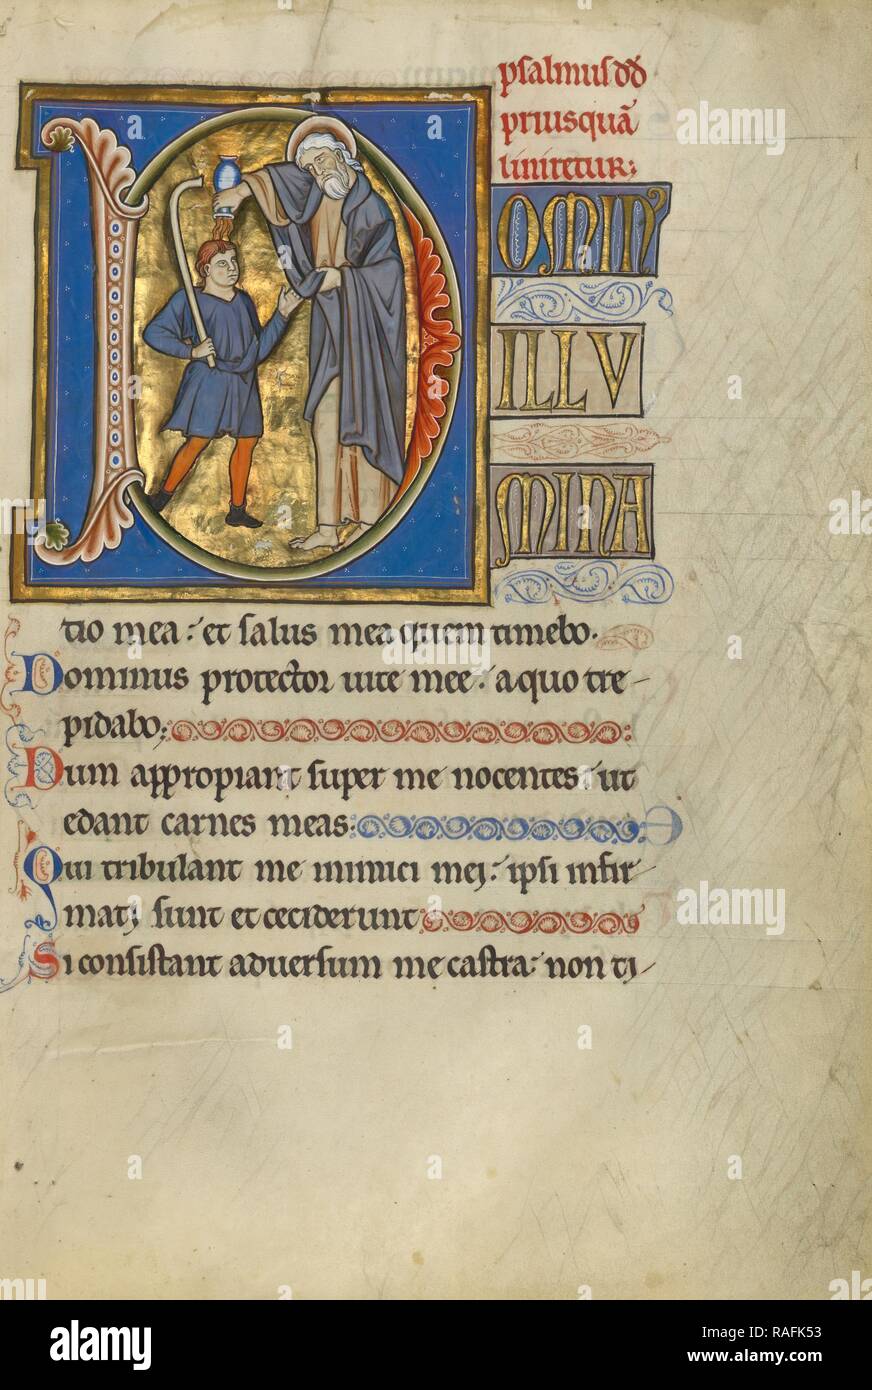 psalmus dd
priusquã
liniretur:
DOMIN9
ILLU
MINA
tio mea: et salus mea quem timebo.
Dominus protector uite mee: a quo tre-
pidabo:
Dum appropiant super me nocentes: ut
edant carnes meas:
Qui tribulant me inimici mei: ipsi infir-
mati sunt et ceciderunt
Si consistant aduersum me castra: non ti-
alamy
alamy
Image ID: RAFK53
www.alamy.com